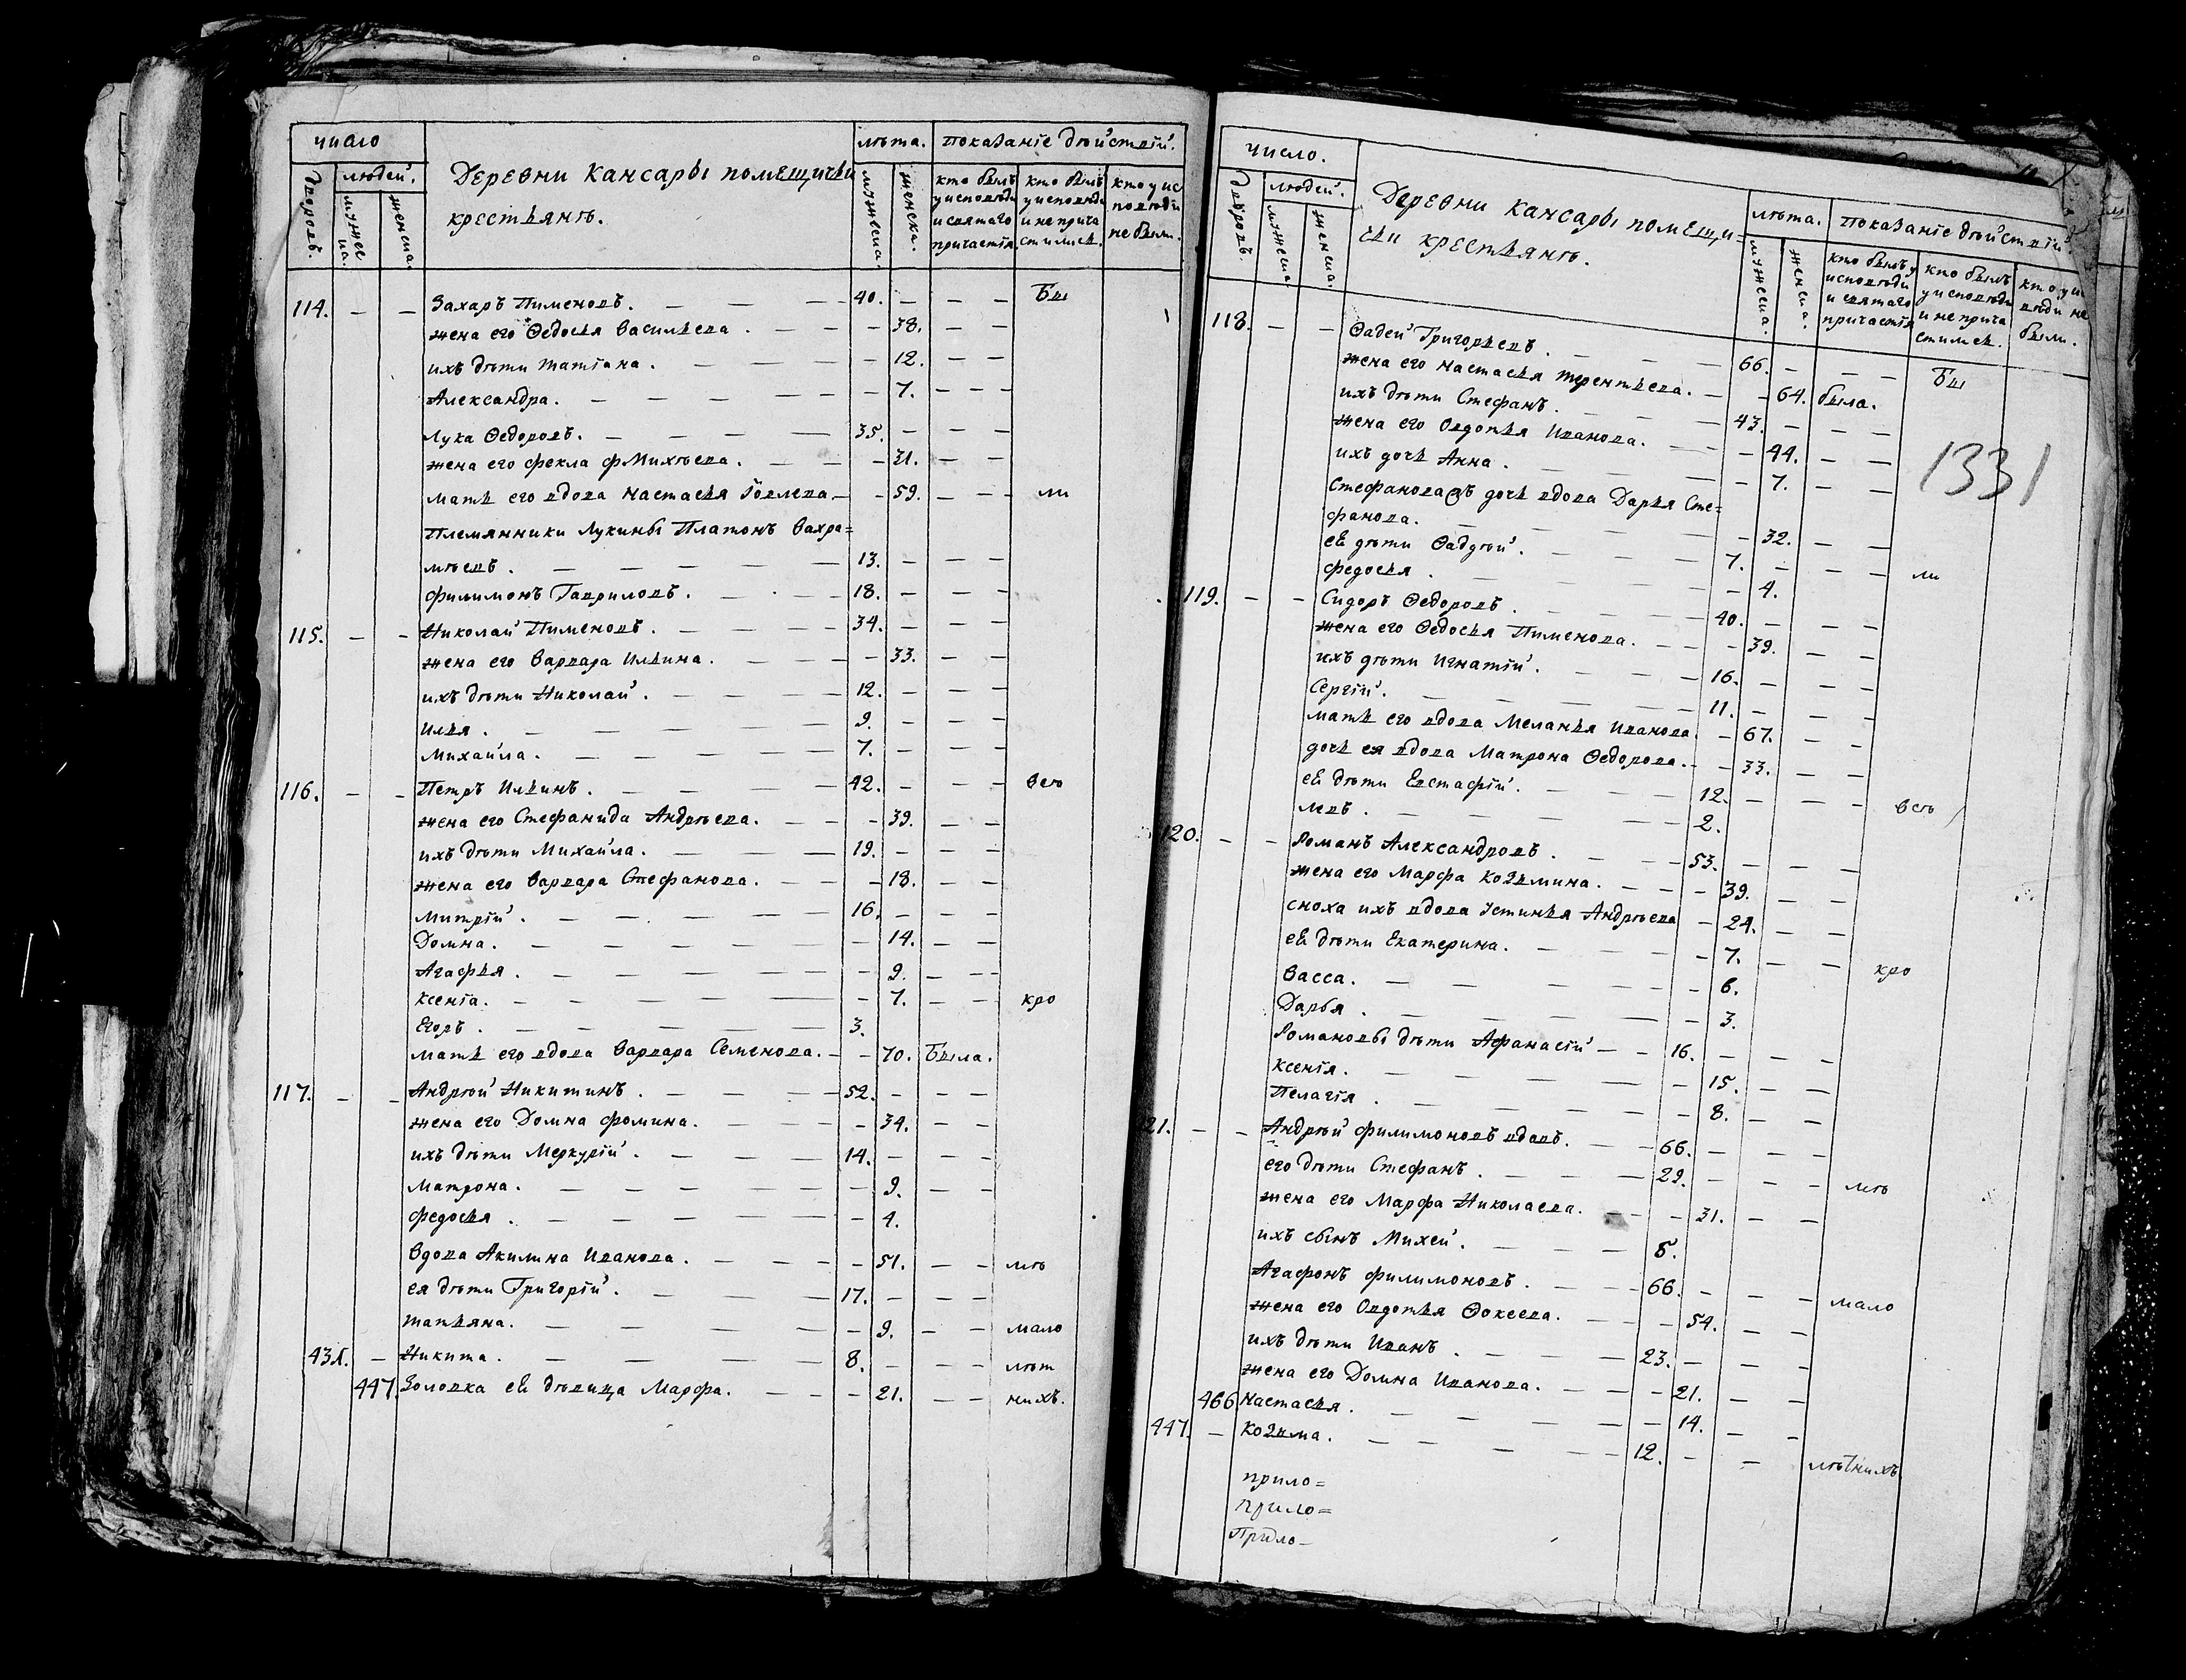 число
лѣта. показанiе дѣйствiй.
дворовъ.
людей.
мужеска.
женска.
Деревни Кансары помѣщичьи
крестьянъ.
мужеска.
женска.
кто былъ у исповѣди и святаго причастiя
кто былъ у исповѣди и не причастился.
кто у исповѣди не былъ.
114. — — Захаръ Пименовъ. — — — 40. — — — Бы
жена его Ѳедосья Васильева. — — — 38. — —
ихъ дѣти Татiана. — — — — 12. — —
Александра. — — — — — — 7. — — —
Лука Ѳедоровъ. — — — — 35. — — —
жена его Фекла фМихѣева. — — — 31. — —
мать его вдова Настасья Iовлева — — 59. — — — ли
Племянники Лукины Платонъ Вахра=
мѣевъ. — — — — — 13. — — —
Филимонъ Гавриловъ. — — — 18. — — —
115. — — Николай Пименовъ. — — — 34. — — —
жена его Варвара Ильина. — — — — 33. — —
ихъ дѣти Николай. — — — — 12. — — —
Илья. — — — — — 9. — — —
Михайла. — — — — — 7. — — —
116. — — Петръ Ильинъ. — — — — 42. — — — всѣ
жена его Стефанида Андрѣева. — — — 39. — —
ихъ дѣти Михайла. — — — 19. — — —
жена его Варвара Стефанова. — — — 18. — —
Митрiй. — — — — — 16. — — —
Домна. — — — — — — 14. — —
Агафья. — — — — — — 9. — — —
Ксенiа. — — — — — — 7. — — кро
Егоръ. — — — — — 3.
мать его вдова Варвара Семенова. — — 70. Была.
117. — — Андрѣй Никитинъ. — — — — 52. — — —
жена его Домна Фомина. — — — — 34. — —
ихъ дѣти Меркурiй. — — — 14. — — —
Матрона. — — — — — — 9. — —
Федосья. — — — — — — 4.
Вдова Акилина Иванова. — — — — 51. — — лѣ
ея дѣти Григорiй. — — — 17. — — —
Татьяна. — — — — — 9. — — мало
431. — Никита. — — — — 8. — — — лѣт
447. Золовка ей дѣвица Марфа. — — — 21. — — нихъ.
число.
лѣта. показанiе дѣйствiй
дворовъ.
людей.
мужеска
женска.
Деревни Кансары помѣщи=
чьи крестьянъ.
мужеска.
женска.
кто былъ у исповѣди и святаго причастiя
кто былъ у исповѣди и не причастился.
кто у исповѣди не были.
1331
118. — — Ѳадей Григорьевъ. — — — 66. — — — Бы
жена его Настасья Терентьева. — — 64. была.
ихъ дѣти Стефанъ. — — — 43. — — —
жена его Овдотья Иванова. — — — 44. — —
ихъ дочь Анна. — — — — 7. — —
Стефановазъ дочь вдова Дарья Сте=
фанова. — — — — — 32. — —
ей дѣти Ѳаддѣй. — — — 7. — — — ли
Федосья. — — — — — 4.
119. — — Сидоръ Ѳедоровъ. — — — 40. — — —
жена его Ѳедосья Пименова. — — — 39. — —
ихъ дѣти Игнатiй. — — — 16. — — —
Сергiй. — — — — — 11. — — —
мать его вдова Меланья Иванова. — 67. — —
дочь ея вдова Матрона Ѳедорова. — — 33. — —
ей дѣти Евстафiй. — — — 12. — — — всѣ
Левъ. — — — — — 2.
120. — — Романъ Александровъ. — — — 53. — — —
жена его Марфа Козьмина. — — — 39. — —
сноха ихъ вдова Устинья Андрѣева — 24. — —
ей дѣти Екатерина. — — — — 7. — — кро
Васса. — — — — — — 6.
Дарья. — — — — — — 3.
Романовы дѣти Афанасiй — — 16. — — —
Ксенiя. — — — — — — 15. — —
Пелагiя. — — — — — — 8. — —
121. — — Андрѣй Филимоновъ вдовъ. — — 66. — — —
его дѣти Стефанъ. — — — 29. — — — лѣ
жена его Марфа Николаева. — — — 31. — —
ихъ сынъ Михей. — — — 5.
Агафонъ Филимоновъ. — — — 66. — — — мало
жена его Овдотья Ѳокеева. — — — 54. — —
ихъ дѣти Иванъ. — — — 23. — — —
жена его Домна Иванова. — — — 21. — —
466 Настасья. — — — — — 14. — —
447. — Козьма. — — — — 12. — — лѣтнихъ
прило=
прило=
Прило—